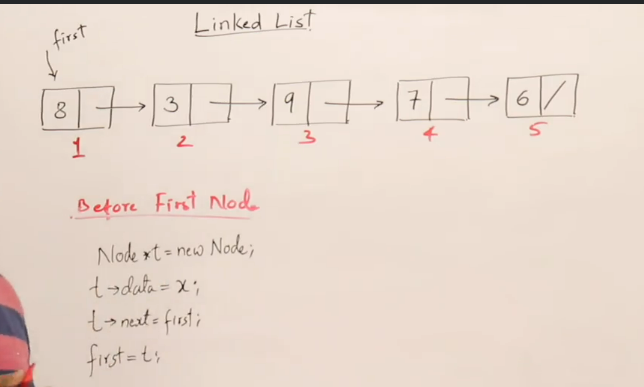 Linked List
first
8 3 9 7 6 /
1 2 3 4 5
Before First Node
Node *t = new Node;
t→data = x;
t→next = first;
first = t;